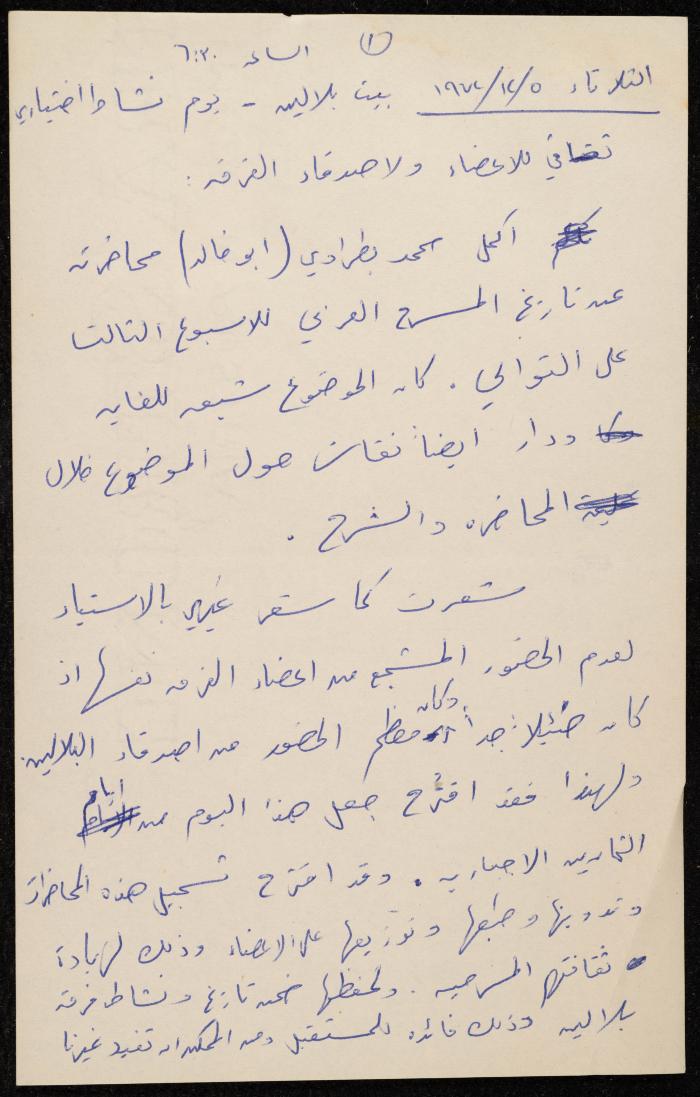 (١) الساعه ٦:٣٠
الثلاثاء ١٩٧٢/١٢/٥ بيت بلالين - يوم نشاط اختياري
ثقافي للاعضاء ولاصدقاء الفرقه :
اكمل محمد بطراوي (ابو خالد) محاضرته
عن تاريخ المسرح العربي للاسبوع الثالث
على التوالي . كان الموضوع شيق للغايه
ودار ايضاً نقاش حول الموضوع خلال
المحاضره والشرح .
شعرت كما شعر غيري بالاستياء
لعدم الحضور المشجع من اعضاء الفرقه نفسها اذ
كان ضئيلا جداً وكان معظم الحضور من اصدقاء البلالين.
ولهذا فقد اقترح جعل هذا اليوم من ايام
التمارين الاجباريه . وقد اقترح تسجيل هذه المحاضرات
وتدوينها وطبعها وتوزيعها على الاعضاء وذلك لزيادة
ثقافتهم المسرحيه . ولحفظها ضمن تاريخ ونشاط فرقة
بلالين وذلك فائده للمستقبل ومن الممكن ان تفيد غيرنا